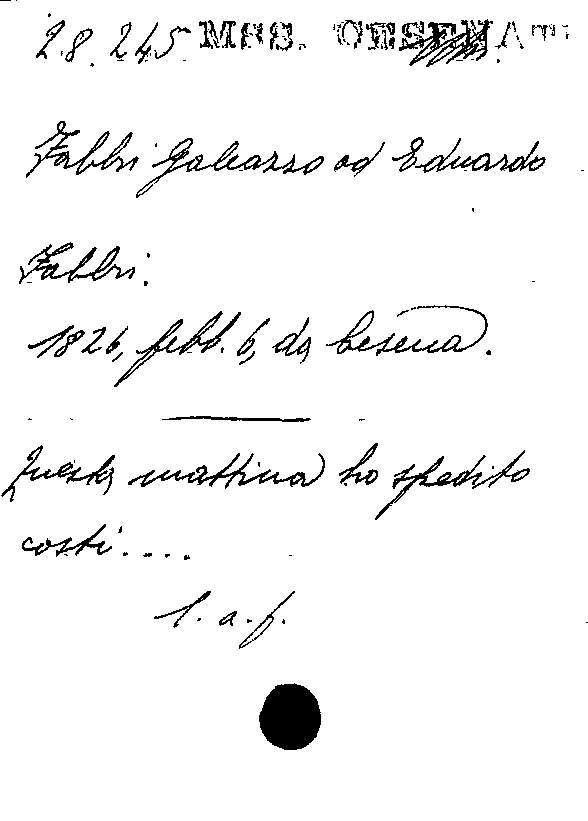 28.245 MSS. CESENATI
Fabbri Galeazzo ad Eduardo
Fabbri.
1826, febb. 6, da Cesena.
Questa mattina ho spedito
costì....
l. a. f.